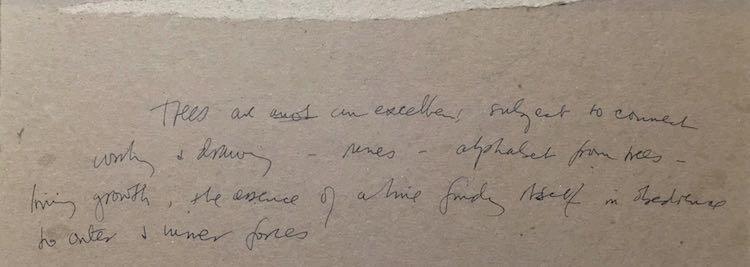 Trees are an excellent subject to connect
& drawing – runes – alphabet from trees –
living growth, the essence of a line finding itself in obedience
to outer & inner forces